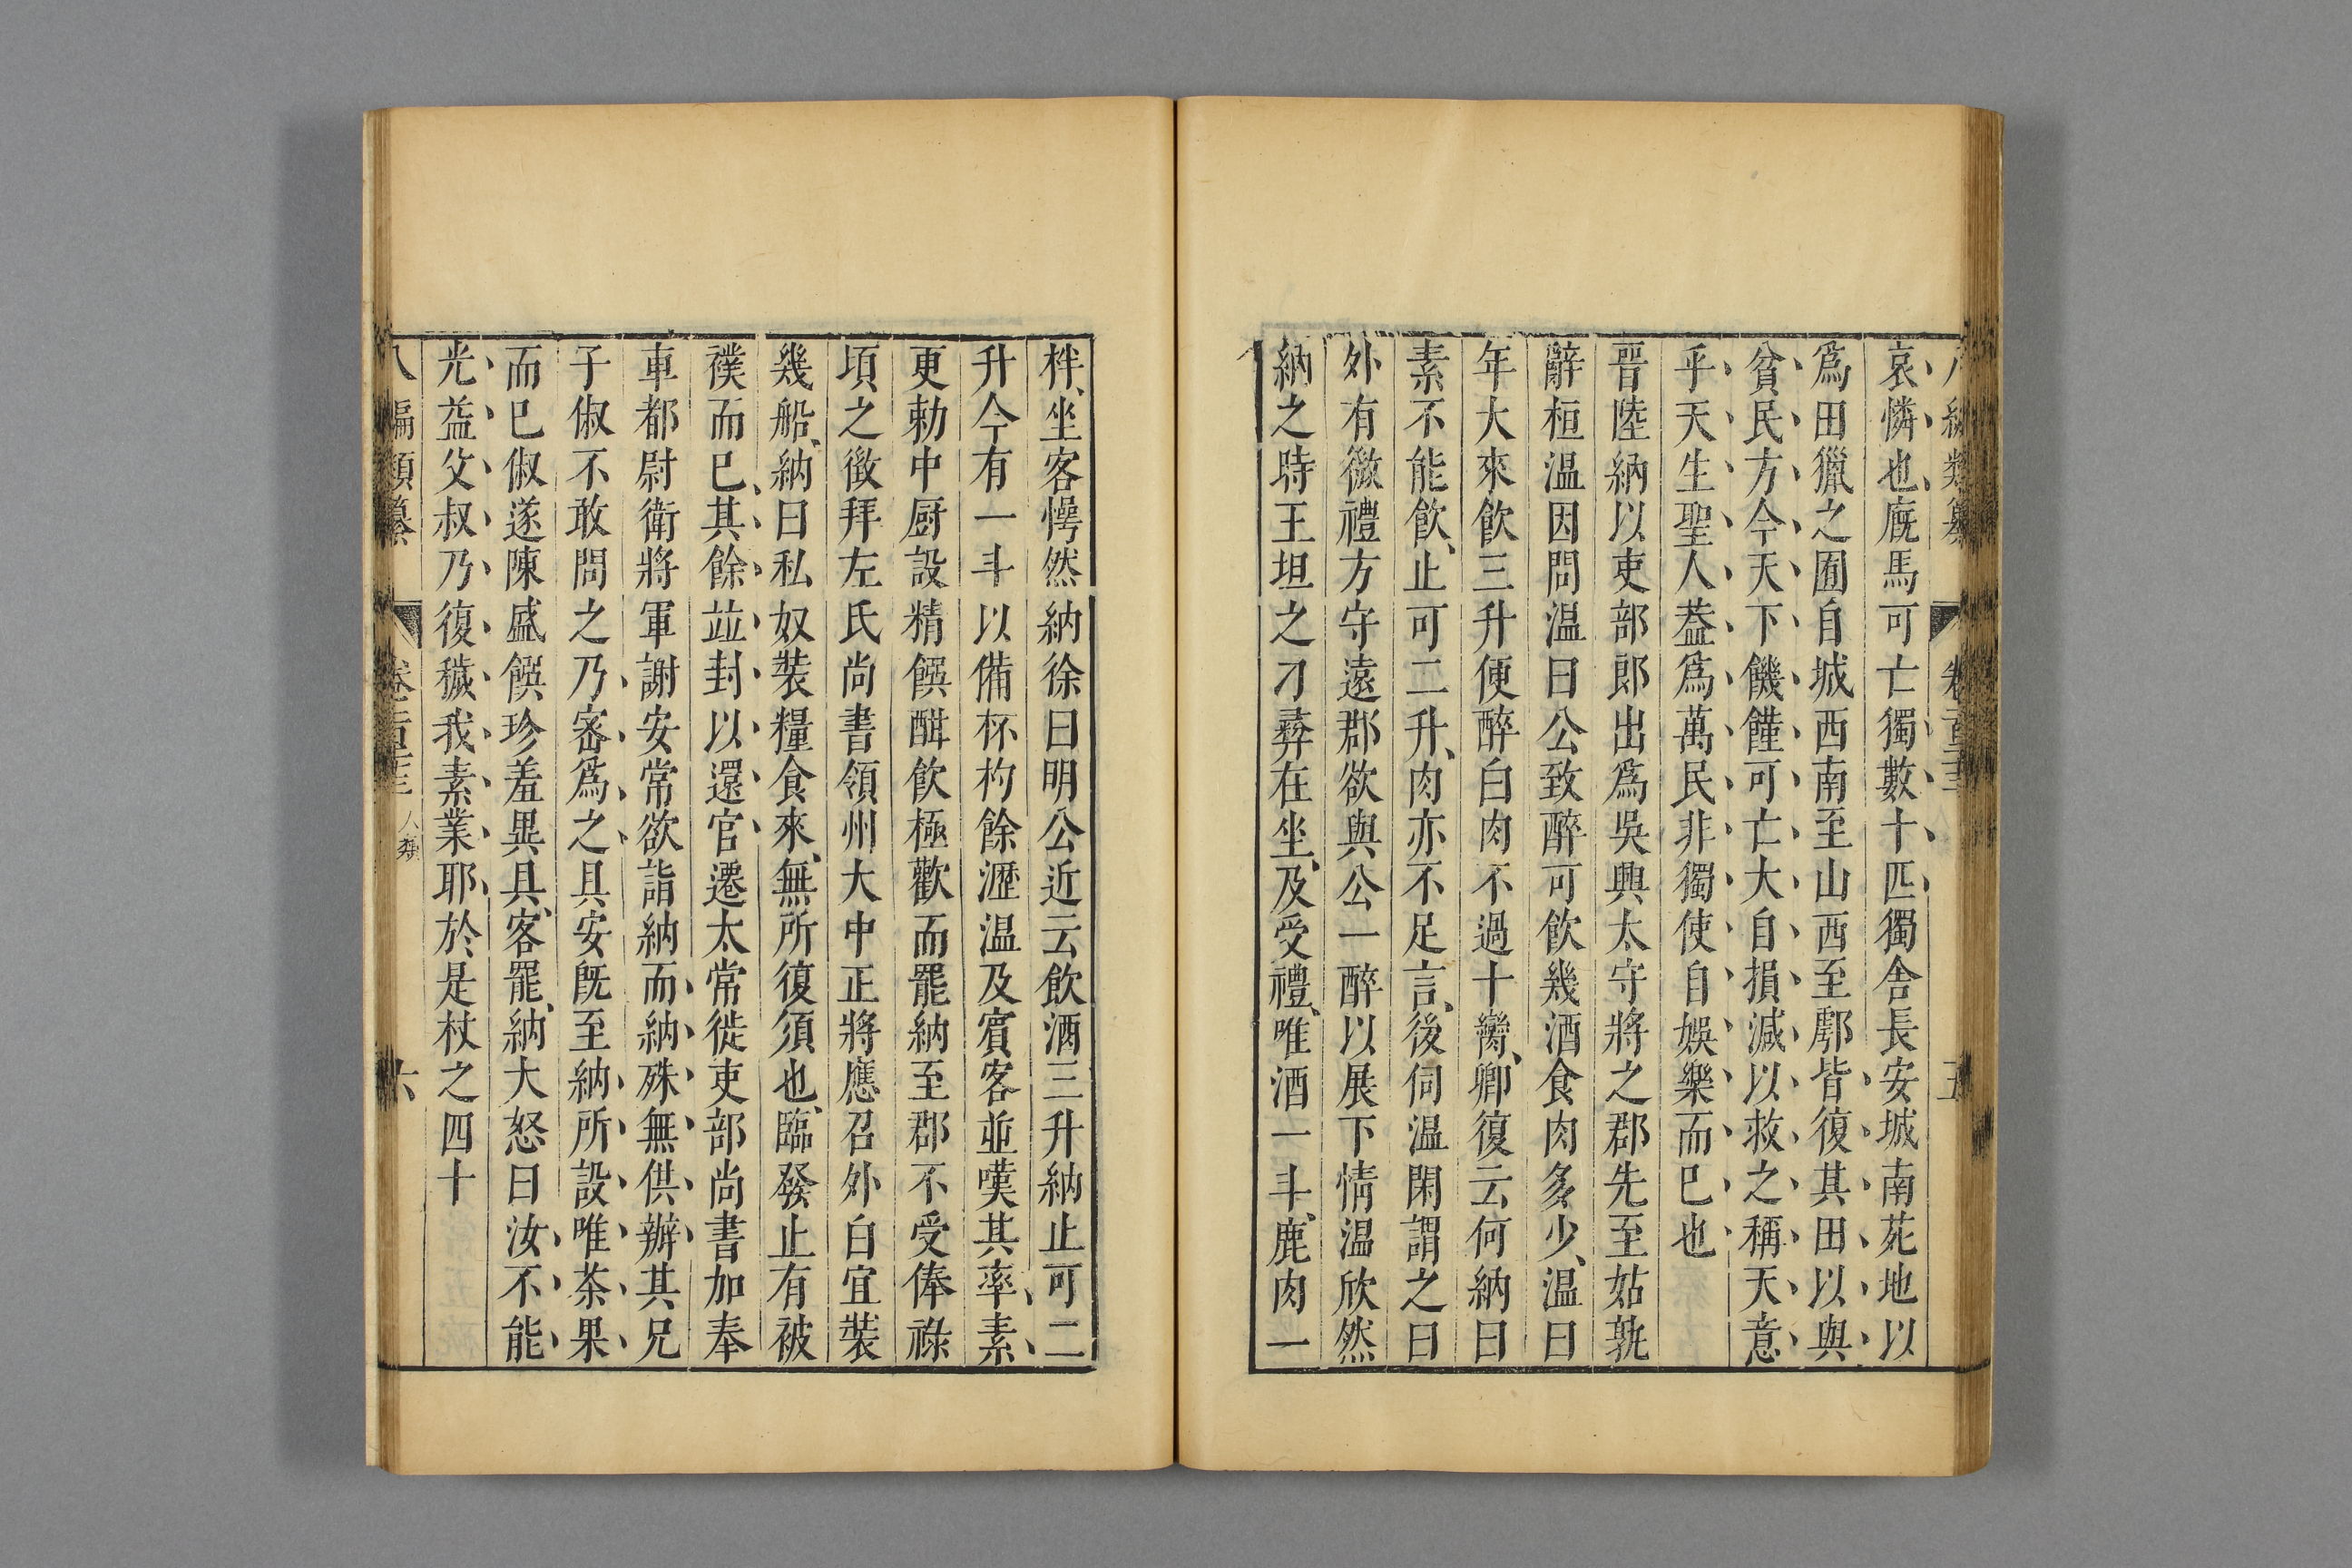 哀憐也廐馬可亡獨數十匹獨舍長安城南苑地以
爲田獵之囿自城西南至山西至鄠皆復其田以與
貧民方今天下饑饉可亡大自損減以救之稱天意
乎天生聖人葢爲萬民非獨使自娛樂而已也
晉陸納以吏部郎出爲吳興太守將之郡先至姑孰
辭桓温因問温曰公致醉可飲幾酒食肉多少、温曰
年大來飲三升便醉白肉不過十臠、卿復云何納曰
素不能飲、止可二升、肉亦不足言、後伺温閑謂之曰
外有微禮方守遠郡欲與公一醉以展下情温欣然
納之時王坦之刁彝在坐、及受禮、唯酒一斗、鹿肉一
柈、坐客愕然納徐曰明公近云飲酒三升納止可二
升今有一斗以備杯杓餘瀝温及賓客並嘆其率素
更勅中厨設精饌酣飲極歡而罷納至郡不受俸祿
頃之徵拜左氏尚書領州大中正將應召外白宜裝
幾船、納曰私奴裝糧食來、無所復須也、臨發止有被
襆而已其餘竝封以還官遷太常徙吏部尚書加奉
車都尉衛將軍謝安常欲詣納而納殊無供辦其兄
子俶不敢問之乃密爲之具安旣至納所設唯茶果
而已俶遂陳盛饌珍羞異具、客罷、納大怒曰汝不能
光益父叔乃復穢我素業耶於是杖之四十
八編類纂 卷二百三 人類 六